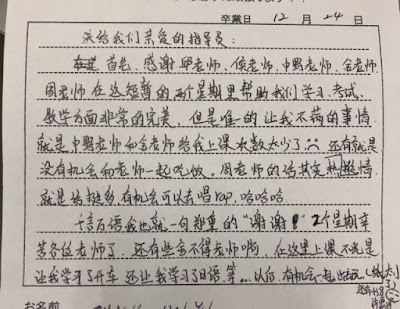 卒業日 12 月 24 日
来给我们亲爱的指导员：
首先，感谢邱老师，侯老师，中野老师，金老师，
周老师在这短暂的两个星期里帮助我们学习、考试，
教学方面非常的完美，但是唯一的让我不满的事情
就是中野老师和金老师给我上课次数太少了 还有就是
没有机会和老师一起吃饭，周老师的话其实
就是话挺多，有机会可以去唱rap，哈哈哈
千言万语我也就一句郑重的“谢谢！”2个星期辛
苦各位老师了，还有些舍不得老师啊，在这里上课不光是
让我学习了开车 还让我学习了日语，等... 以后，有机会一起出去玩
お名前